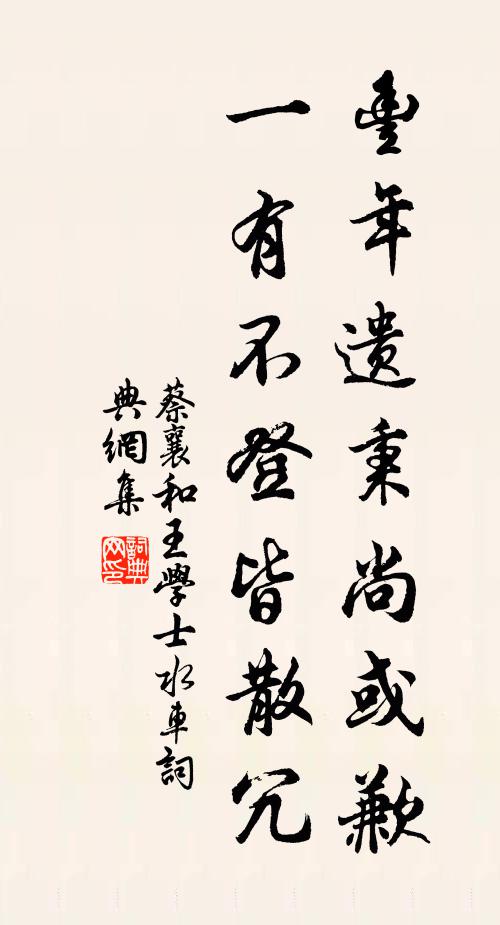 豐年遺秉尚或歉
一有不登皆散冗
蔡襄和王學士水車詞
典網集
詞典網印